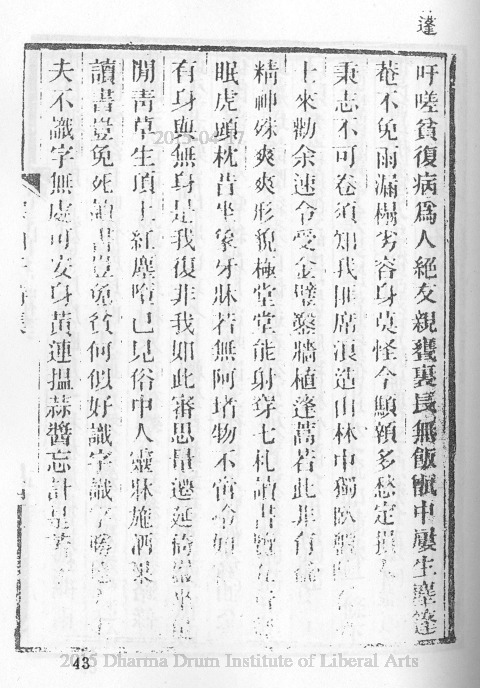 蓬
吁嗟貧復病為人絕友親甕裏長無飯甑中屢生塵蓬
菴不免雨漏榻劣容身莫怪今顦顇多愁定損
秉志不可卷須知我匪席浪造山林中獨臥盤
士來勸余速令受金璧鑿牆植蓬蒿若此非有益
精神殊爽爽形貌極堂堂能射穿七札讀書覽五
眠虎頭枕昔坐象牙牀若無阿堵物不啻冷如
有身與無身是我復非我如此審思量遷延倚巖坐
閒青草生頂上紅塵墮已見俗中人靈牀施酒果
讀書豈免死讀書豈免貧何似好識字識字勝他
夫不識字無處可安身黃連搵蒜醬忘計是苦
2015-04-17
43
2015 Dharma Drum Institute of Liberal Arts